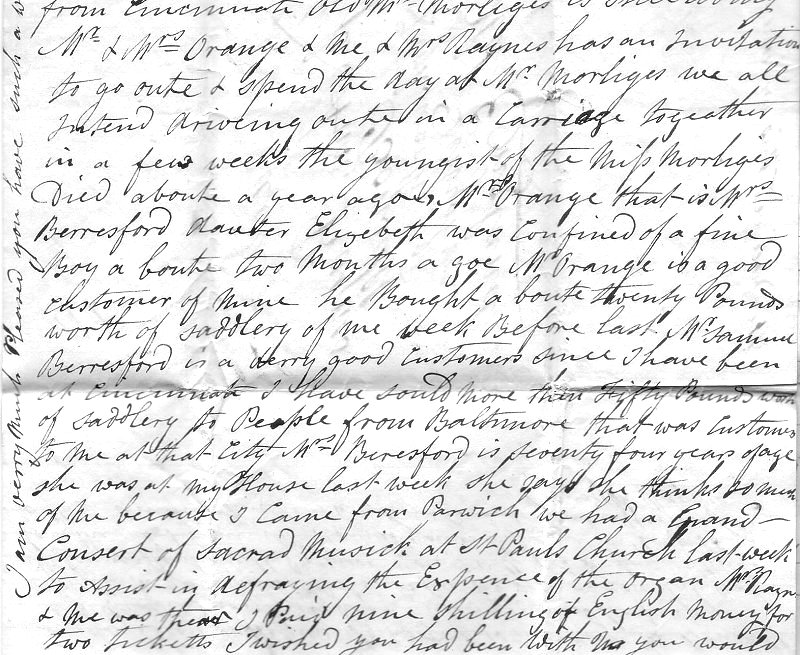 from Cincinnati Old Mr Morliges is
Mr & Mrs Orange & Me & Mrs Raynes has an Invitation
to go oute & spend the day at Mr Morliges we all
Intend driveing oute in a Carriage togeather
in a few weeks the youngist of the Miss Morliges
Died aboute a year agoe, Mrs Orange that is Mrs
Berresford dauter Elizebeth was Confined of a fine
Boy a boute two Months a goe Mr Orange is a good
Customer of Mine he Bought a boute twenty Pounds
worth of saddlery of me week Before last Mr Samuel
Berresford is a verry good Customers since I have been
at Cincinnati I have sould more then Fifty Pounds worth
of saddlery to People from Baltimore that was Customers
to Me at that City Mrs Beresford is seventy four years of age
she was at my House last week she says she thinks so much
of Me because I Came from Parwich we had a Grand
Consert of Sacrad Musick at St Pauls Church last week
to Assist in defraying the Expence of the Organ Mrs Rayns
& Me was there I Paid nine shilling of English Money for
two ticketts I wished you had been with us you would
I am verry Much Pleased you have such a